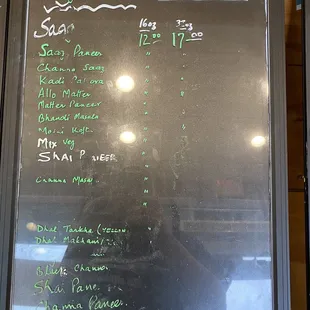 Saag 16oz 32oz
12.00 17.00
Saag Paneer
Channa Saag
Kadi Pakora
Allo Matter
Matter Paneer
Bhandi Masala
Malai Koft
Mix Veg
SHAI PANEER
Channa Masa
Dhal Tarkha (YELLOW
Dhal Makhani
Black Channa
Shai Pane
Channa Paneer